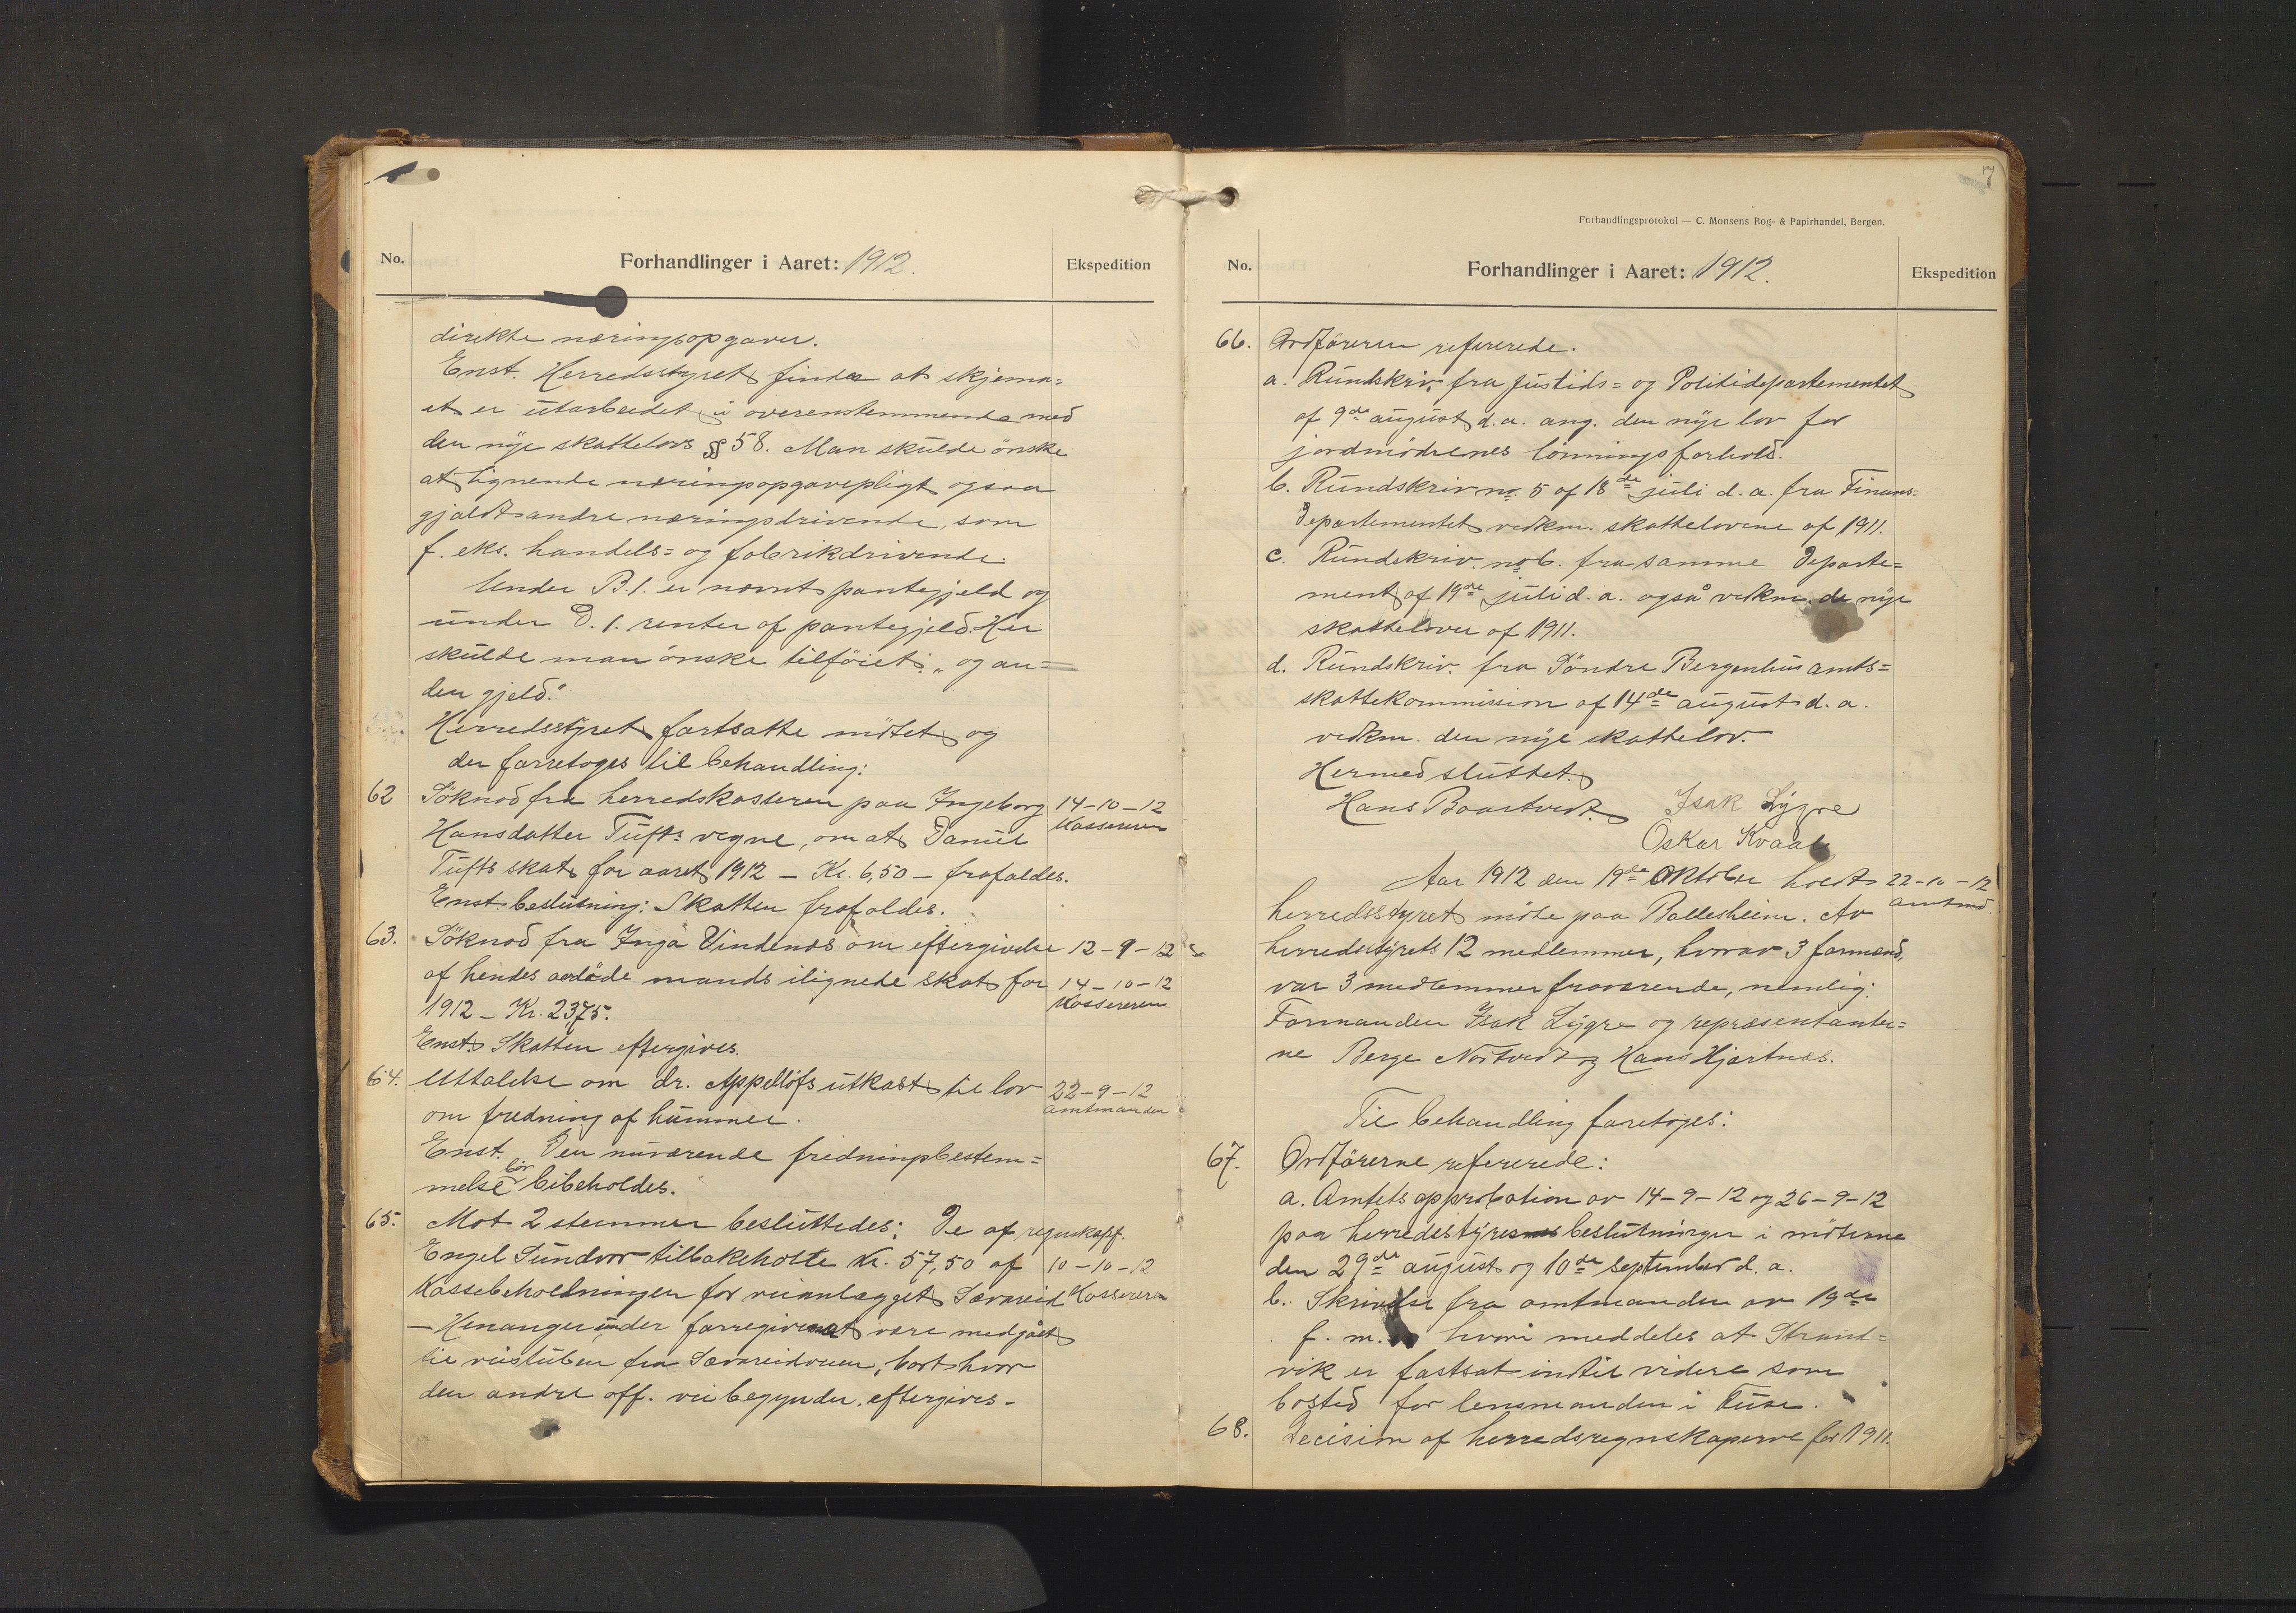 No.
Forhandlinger i Aaret: 1912.
Ekspedition
direkte næringsopgaver.
Enst. Herredsstyret finder at skjema=
et er utarbeidet i overenstemmende med
den nye skattelovs § 58. Man skulde ønske
at lignende næringsopgavepligt ogsaa
gjaldt andre næringsdrivende, som
f. eks. handels= og fabrikdrivende.
Under B.1. er nævnt pantegjeld og
under D. 1. renter af pantegjeld. Her
skulde man ønske tilføiet: „og an=
den gjeld."
Herredsstyret fortsatte mötet og
der forretoges til behandling:
62 Söknad fra herredskasseren paa Ingeborg 14-10-12
Hansdatter Tufts vegne, om at Daniel Kassereren
Tufts skat for aaret 1912 - Kr. 6,50 - frafaldes.
Enst. beslutning: Skatten frafaldes.
63. Söknad fra Inga Vindenes om eftergivelse 12-9-12
af hendes avdöde mands ilignede skat for 14-10-12
1912 - Kr. 23,75. Kassereren
Enst. Skatten eftergives.
64. Uttalelse om dr. Appellöfs utkast til lov 22-9-12
om fredning af hummer. Amtmanden
Enst. Den nuværende fredningsbestem=
melse bör bibeholdes.
65. Mot 2 stemmer besluttedes: De af regnskapsf.
Engel Sundvor tilbakeholdte Kr. 57,50 af 10-10-12
Kassebeholdningen for veianlægget Sævareid Kassereren
- Henanger under forregivenet være medgået
til veistuben fra Sævareidveien, bort hvor
den andre off. vei begynder, eftergives.
7
Forhandlingsprotokol — C. Monsens Bog- & Papirhandel, Bergen.
No.
Forhandlinger i Aaret: 1912.
Ekspedition
66. Ordföreren refererede.
a. Rundskriv. fra Justids= og Politidepartementet
af 9de august d.a. ang. den nye lov for
jordmödrenes lönningsforhold.
b. Rundskriv no. 5 af 18de juli d. a. fra Finans=
Departementet vedkm. skattelovene af 1911.
c. Rundskriv. no 6. fra samme Departe=
ment af 19de juli d. a. også vedkm. de nye
skattelover af 1911.
d. Rundskriv. fra Söndre Bergenhus amts=
skattekommission af 14de august d. a.
vedkm. den nye skattelov.
Hermed sluttet.
Hans Baartvedt. Isak Lygre
Oskar Kvaale
Aar 1912 den 19de Oktober holdt 22-10-12
herredsstyret möte paa Ballesheim. Av amtmd.
herredsstyrets 12 medlemmer, hvorav 3 formænd,
var 3 medlemmer fraværende, nemlig:
Formanden Isak Lygre og repræsentanter=
ne Berge Nortvedt og Hans Hjartnæs.
Til behandling foretoges:
67. Ordförerne refererede:
a. Amtets approbation av 14-9-12 og 26-9-12
paa herredsstyres beslutninger i möterne
den 29de august og 10de september d. a.
b. Skrivelse fra amtmanden av 19de
f. m. hvori meddeles at Strand=
vik er fastsat indtil videre som
bosted for lensmanden i Fuse.
68. Decision af herredsregnskaperne for 1911.